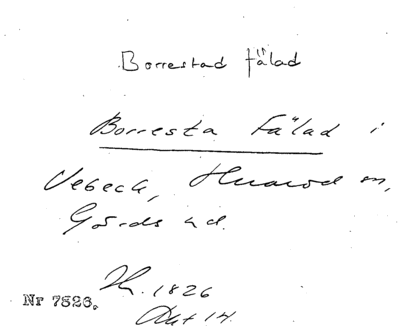 Borrestad fälad
Borresta Fälad i
Vebeck, Huarod sn,
Gärds hd.
Nr 7826. Th. 1826
Akt 14